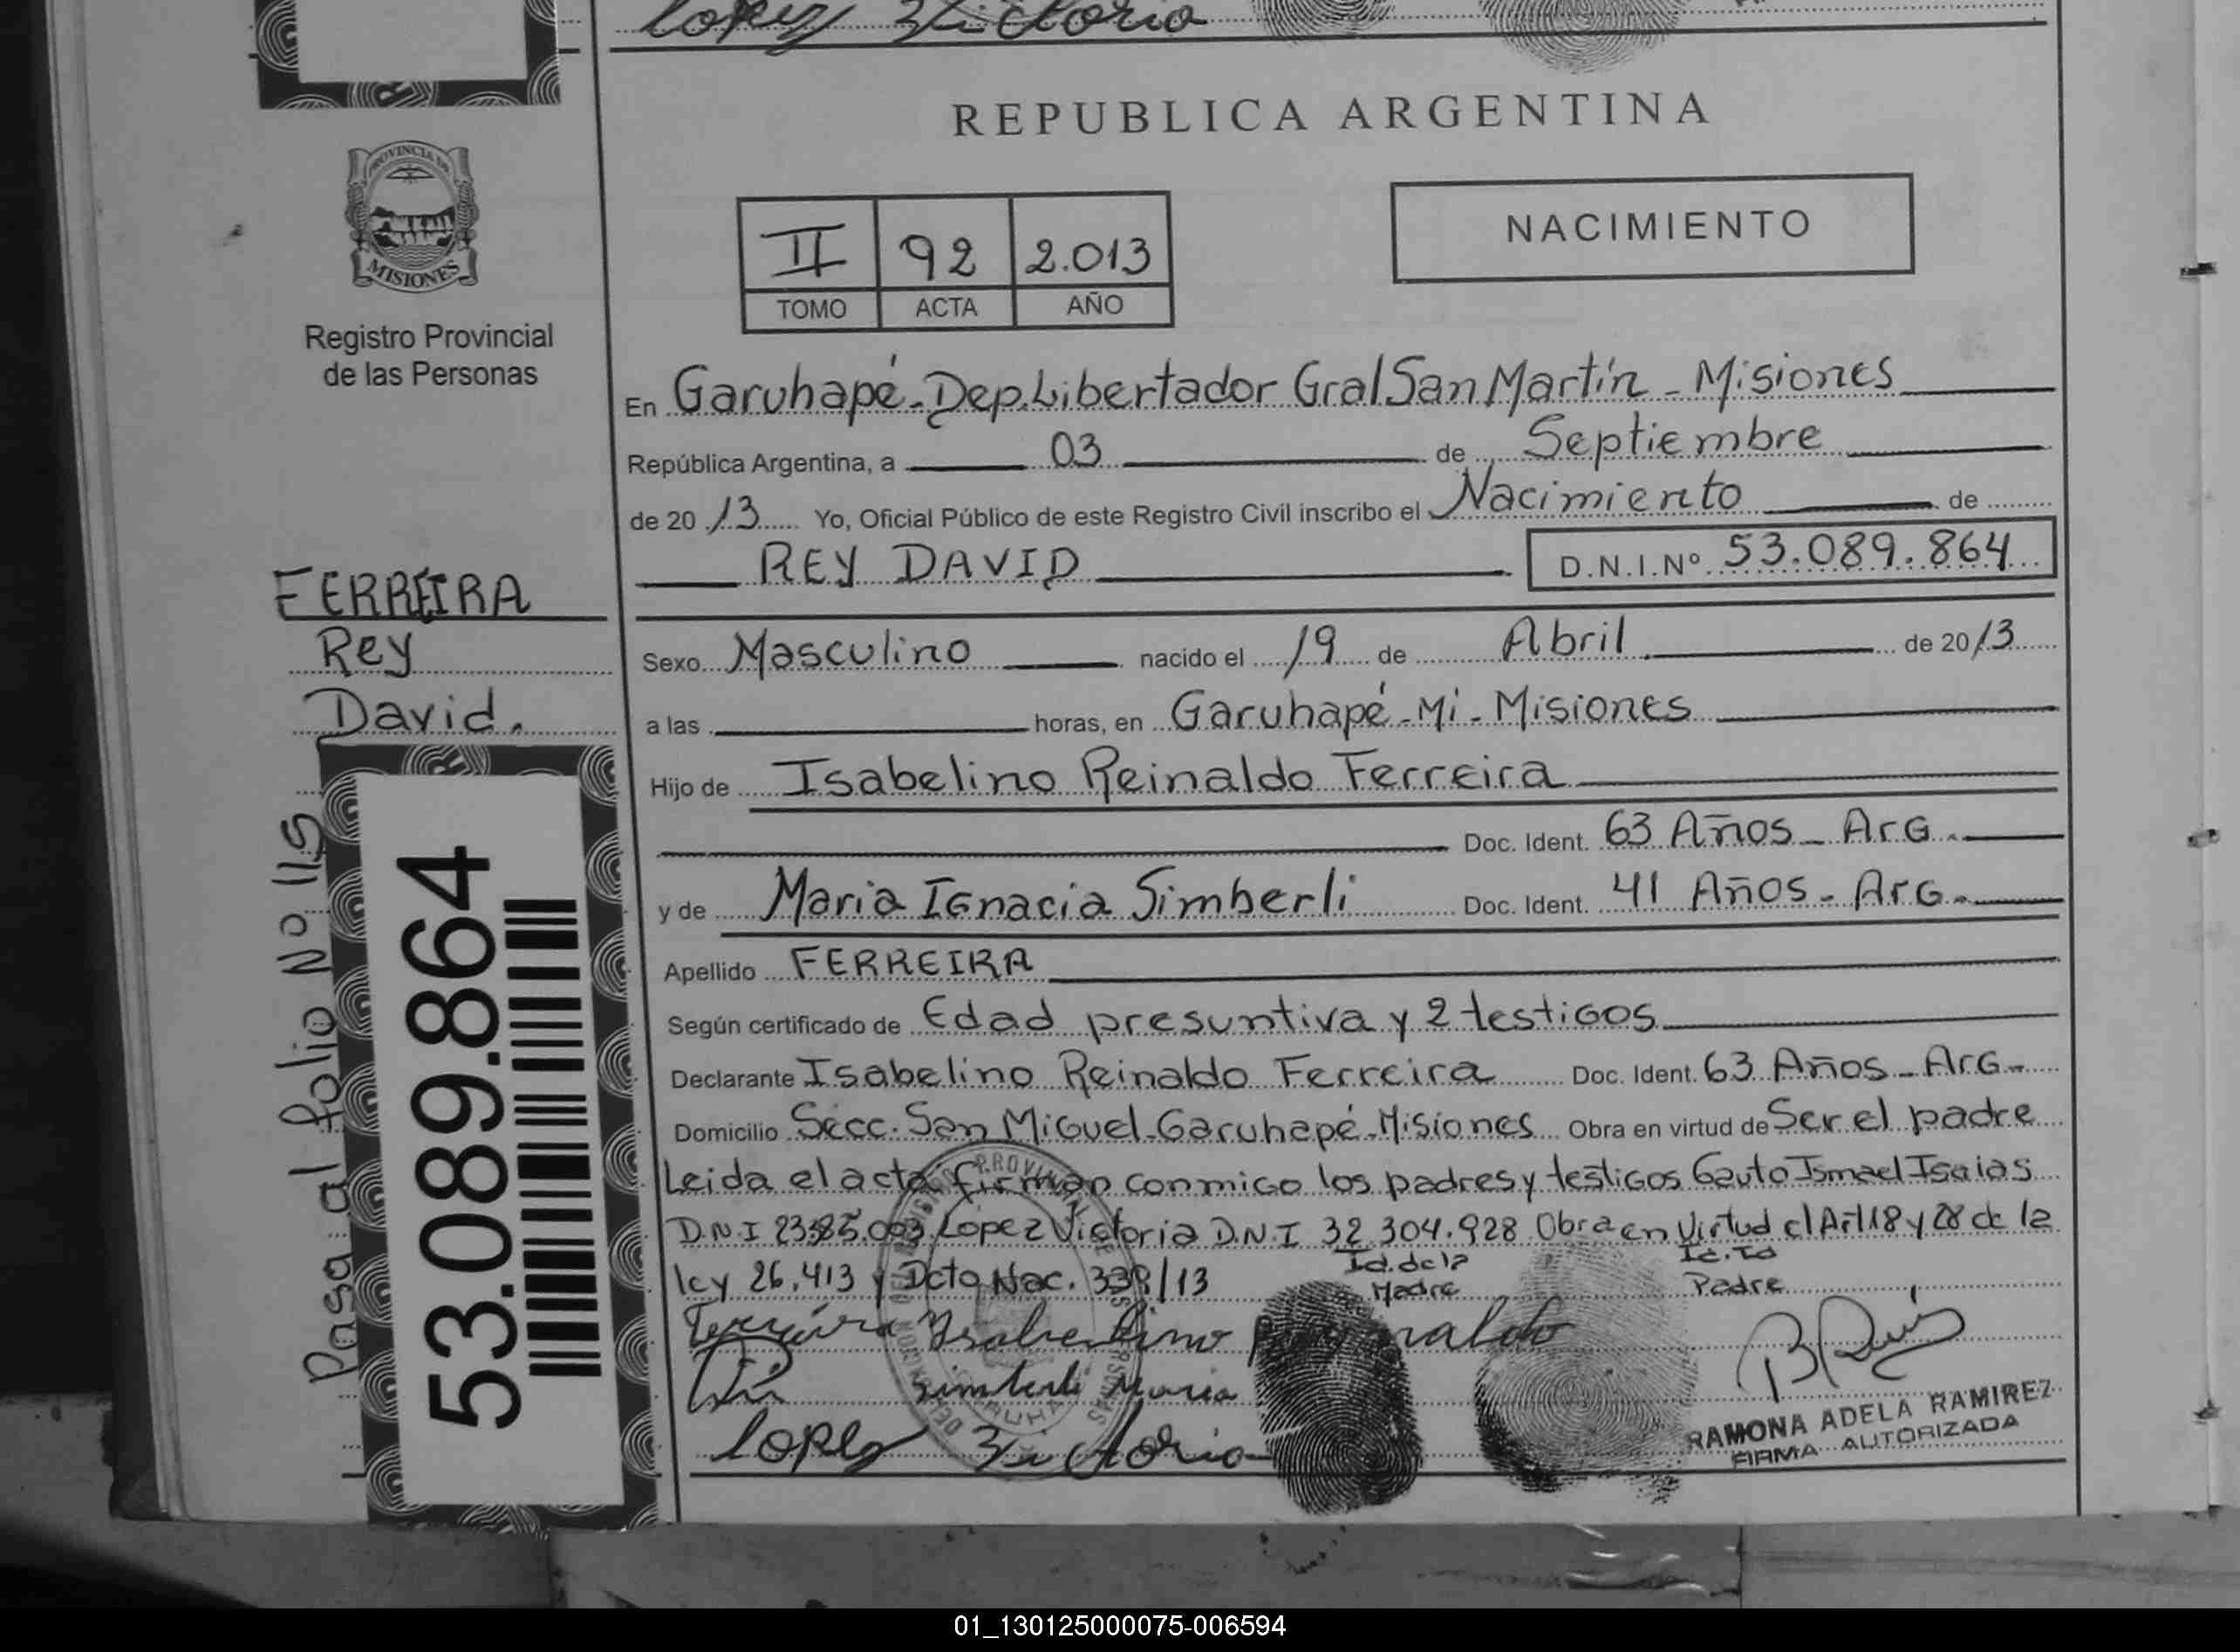 Lopez Victoria
REPUBLICA ARGENTINA
PROVINCIA DE
MISIONES
Registro Provincial
de las Personas
II 92 2.013
TOMO ACTA AÑO
NACIMIENTO
En Garuhapé - Dep. Libertador Gral San Martín - Misiones
República Argentina, a 03 de Septiembre
de 20 13 Yo, Oficial Público de este Registro Civil inscribo el Nacimiento de
REY DAVID D.N.I.Nº 53.089.864
FERREIRA
Rey
David.
Sexo Masculino nacido el 19 de Abril de 2013
a las horas, en Garuhapé - Mi - Misiones
Hijo de Isabelino Reinaldo Ferreira
Doc. Ident. 63 Años - Arg.
y de Maria Ignacia Simberli Doc. Ident. 41 Años - Arg.
Apellido FERREIRA
Según certificado de Edad presuntiva y 2 testigos
Declarante Isabelino Reinaldo Ferreira Doc. Ident. 63 Años - Arg.
Domicilio Secc. San Miguel - Garuhapé - Misiones Obra en virtud de Ser el padre
Leida el acta firman conmigo los padres y testigos Gauto Ismael Isaias
D.N.I Lopez Victoria D.N.I 32.304.928 Obra en Virtud el Art 18 y 28 de la
ley 26.413 y Dcto Nac. 339/13
Id. de la
Madre
Padre
Ferreira Isabelino
Simberli Maria
Lopez Victoria
RAMONA ADELA RAMIREZ
FIRMA AUTORIZADA
Pasa al folio No 115
53.089.864
01_130125000075-006594